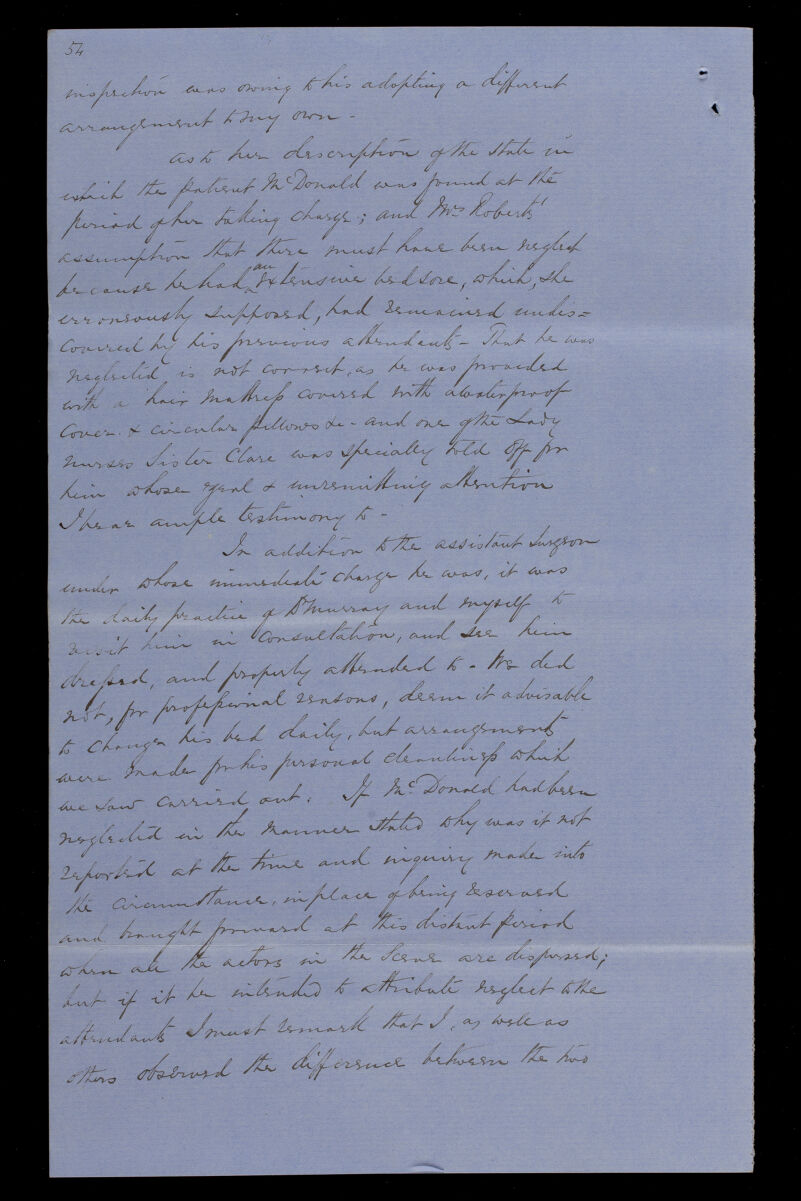 54
inspection was owing to his adopting a different
arrangement to my own -
As to her description of the state in
which the patient McDonald was found at the
period of her taking charge; and Mrs Roberts'
assumption that there must have been neglect
because he had an extensive bedsore, which, she
erroneously supposed, had remained undis=
covered by his previous attendants - That he was
neglected is not correct, as he was provided
with a hair mattress covered with a waterproof
cover & circular pillows &c - and one of the Lady
nurses Sister Clare was specially told off for
him whose zeal & unremitting attention
I bear ample testimony to -
In addition to the assistant Surgeon
under whose immediate charge he was, it was
the daily practice of Dr Murray and myself to
visit him in consultation, and see him
dressed, and properly attended to - We did
not, for professional reasons, deem it advisable
to change his bed daily, but arrangements
were made for his personal cleanliness which
we saw carried out. If McDonald had been
neglected in the manner stated why was it not
reported at the time and inquiry made into
the circumstance, in place of being reserved
and brought forward at this distant period
when all the actors in the Scene are dispersed;
but if it be intended to attribute neglect to the
attendants I must remark that I, as well as
others observed the difference between the two